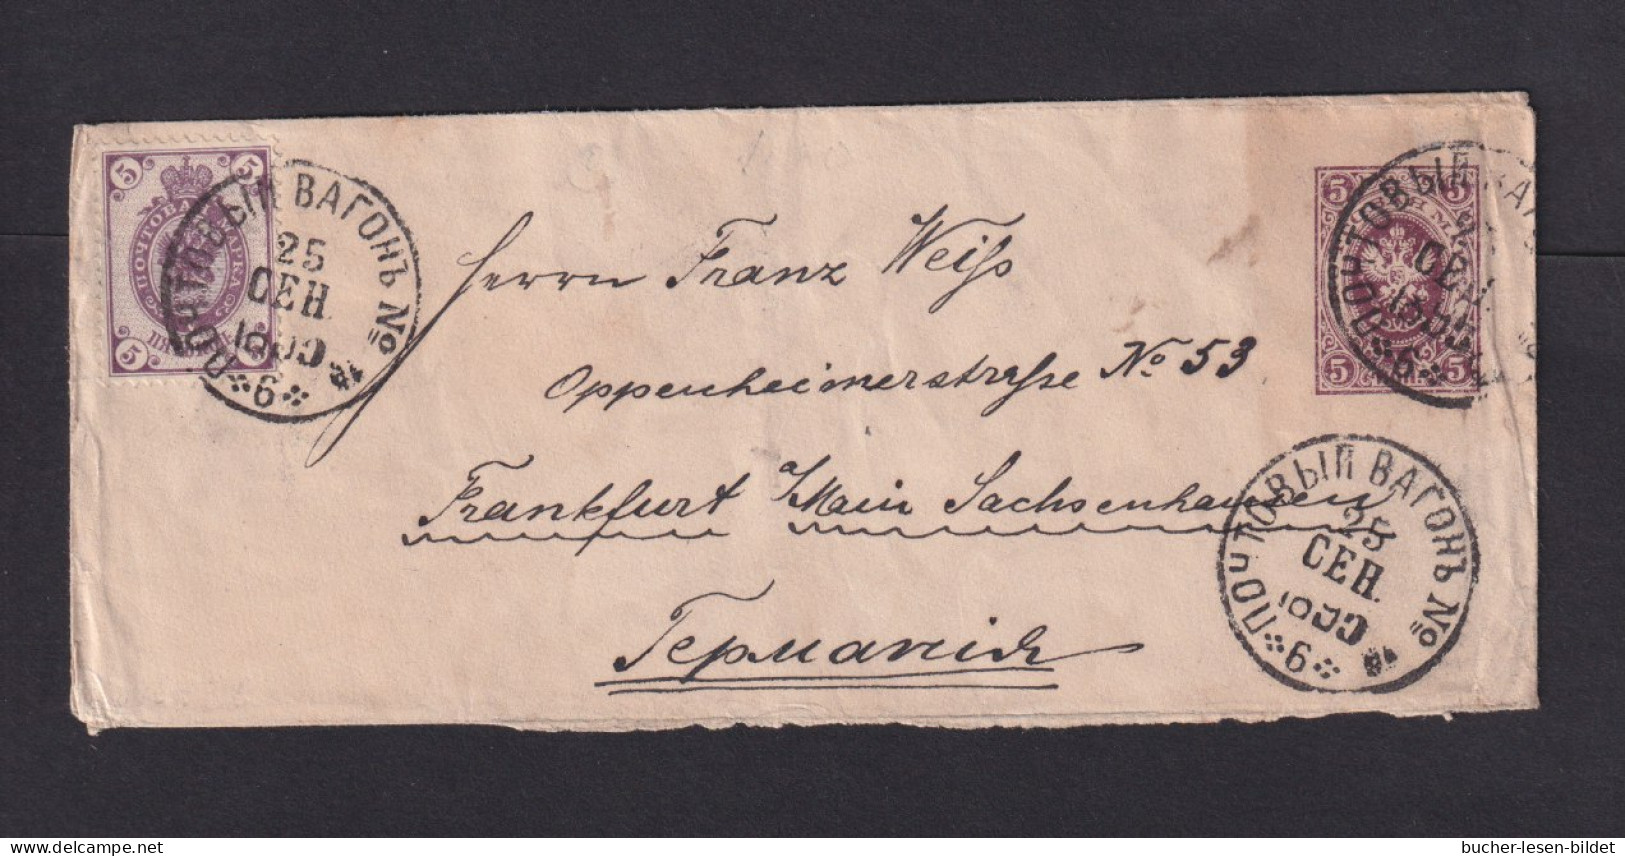 5 5
ПОЧТОВАЯ МАРКА
5
ПОЧТОВЫЙ ВАГОНЪ №
25
СЕН.
6
5 5
5 5
ПОЧТОВЫЙ
СЕН
6
Herrn Franz Weiss
Oppenheimerstrasse No. 53
Frankfurt a/Main Sachsenhausen
Германія
ПОЧТОВЫЙ ВАГОНЪ №
25
СЕН.
6
bucher-lesen-bildet